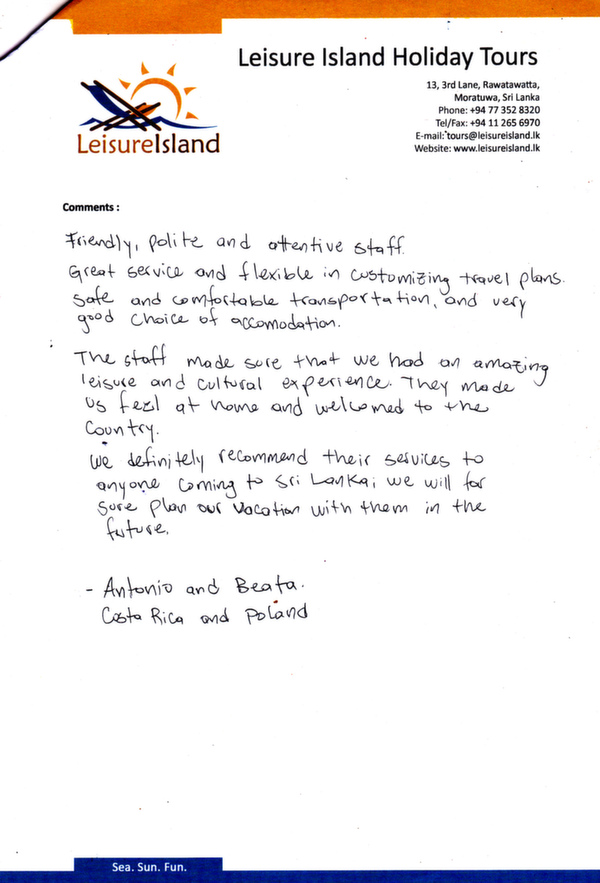 Leisure Island Holiday Tours
13, 3rd Lane, Rawatawatta,
Moratuwa, Sri Lanka
Phone: +94 77 352 8320
Tel/Fax: +94 11 265 6970
E-mail: tours@leisureisland.lk
Website: www.leisureisland.lk
LeisureIsland
Comments :
Friendly, polite and attentive staff.
Great service and flexible in customizing travel plans.
Safe and comfortable transportation, and very
good choice of accomodation.
The staff made sure that we had an amazing
leisure and cultural experience. They made
us feel at home and welcomed to the
country.
We definitely recommend their services to
anyone coming to Sri Lanka; we will for
sure plan our vacation with them in the
future.
- Antonio and Beata.
Costa Rica and Poland
Sea. Sun. Fun.